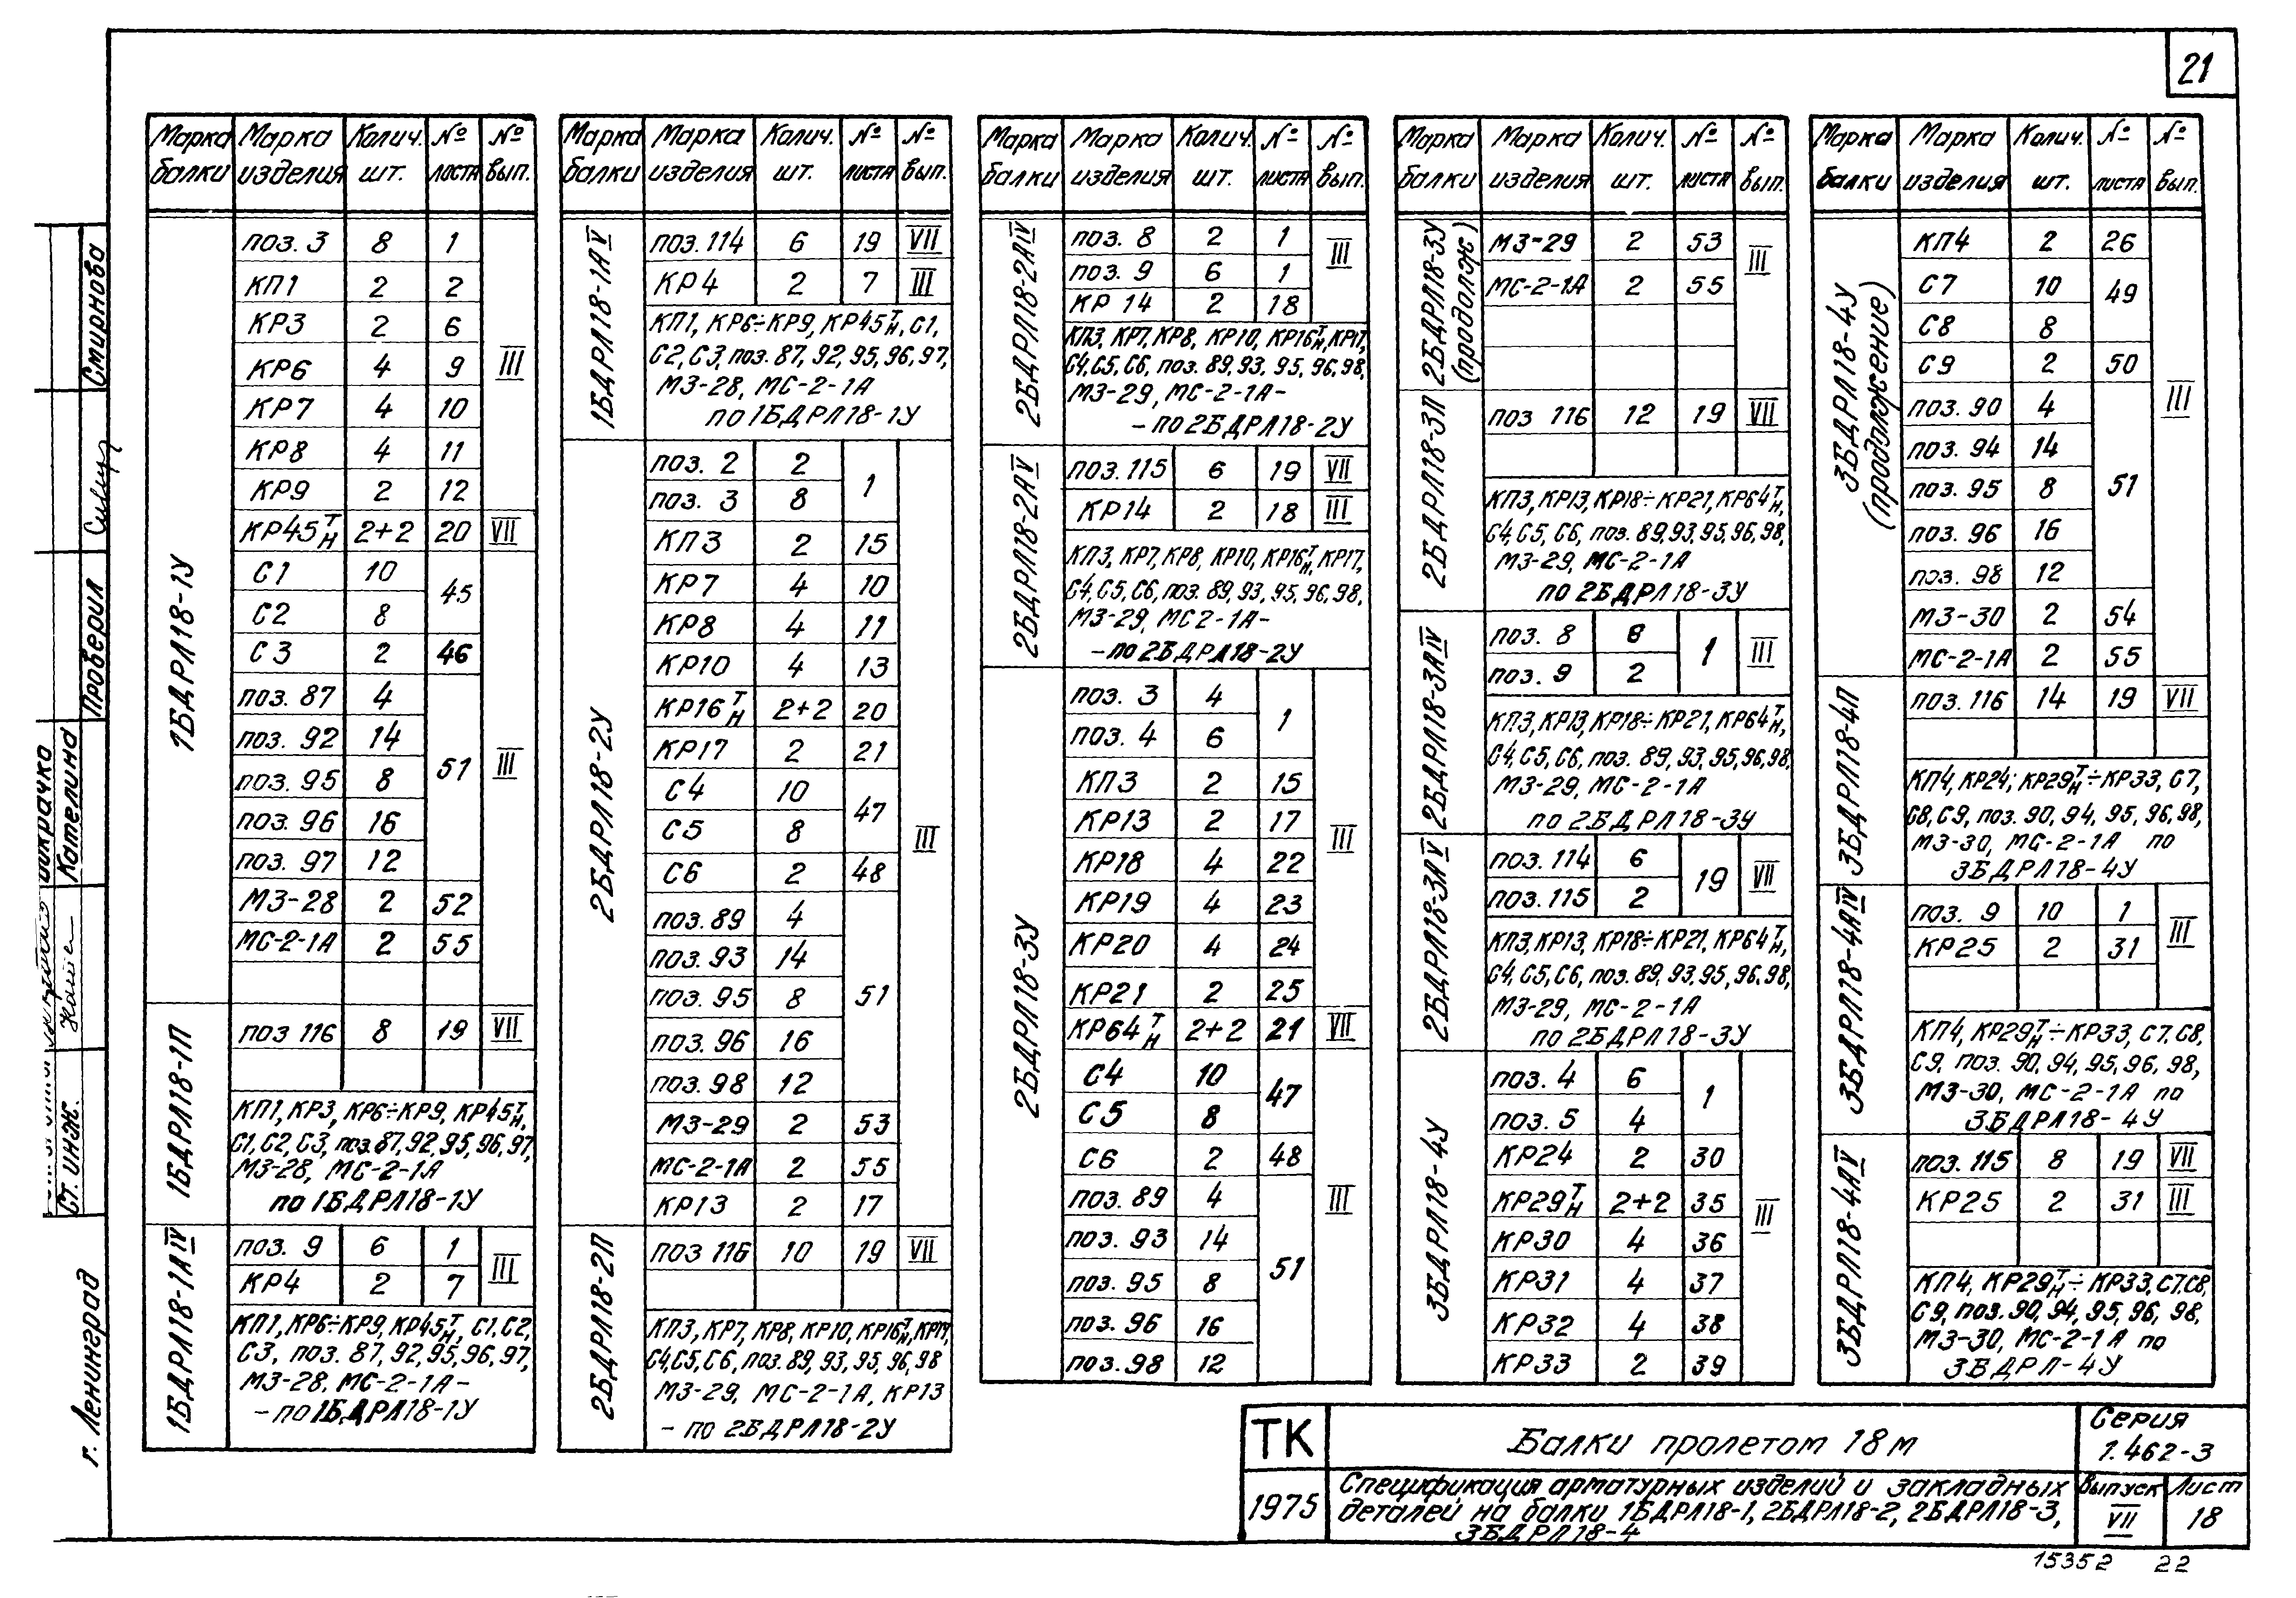 21
Марка балки Марка изделия Колич. шт. № листа № вып.
1БДРЛ18-1У
поз. 3 8 1 III
КП1 2 2
КР3 2 6
КР6 4 9
КР7 4 10
КР8 4 11
КР9 2 12
КР45 Т/Н 2+2 20 VII
С1 10 45 III
С2 8
С3 2 46
поз. 87 4 51
поз. 92 14
поз. 95 8
поз. 96 16
поз. 97 12
МЗ-28 2 52
МС-2-1А 2 55
1БДРЛ18-1П
поз 116 8 19 VII
КП1, КР3, КР6÷КР9, КР45 Т/Н,
С1, С2, С3, поз. 87, 92, 95, 96, 97,
МЗ-28, МС-2-1А
по 1БДРЛ18-1У
1БДРЛ18-1АIV
поз. 9 6 1 III
КР4 2 7
КП1, КР6÷КР9, КР45 Т/Н, С1, С2,
С3, поз. 87, 92, 95, 96, 97,
МЗ-28, МС-2-1А-
- по 1БДРЛ18-1У
Марка балки Марка изделия Колич. шт. № листа № вып.
1БДРЛ18-1АV
поз. 114 6 19 VII
КР4 2 7 III
КП1, КР6÷КР9, КР45 Т/Н, С1,
С2, С3, поз. 87, 92, 95, 96, 97,
МЗ-28, МС-2-1А
по 1БДРЛ18-1У
2БДРЛ18-2У
поз. 2 2 1 III
поз. 3 8
КП3 2 15
КР7 4 10
КР8 4 11
КР10 4 13
КР16 Т/Н 2+2 20
КР17 2 21
С4 10 47
С5 8
С6 2 48
поз. 89 4 51
поз. 93 14
поз. 95 8
поз. 96 16
поз. 98 12
МЗ-29 2 53
МС-2-1А 2 55
КР13 2 17
2БДРЛ18-2П
поз 116 10 19 VII
КП3, КР7, КР8, КР10, КР16 Т/Н, КР17,
С4, С5, С6, поз. 89, 93, 95, 96, 98
МЗ-29, МС-2-1А, КР13
- по 2БДРЛ18-2У
Марка балки Марка изделия Колич. шт. № листа № вып.
2БДРЛ18-2АIV
поз. 8 2 1 III
поз. 9 6 1
КР 14 2 18
КП3, КР7, КР8, КР10, КР16 Т/Н, КР17,
С4, С5, С6, поз. 89, 93, 95, 96, 98,
МЗ-29, МС-2-1А-
- по 2БДРЛ18-2У
2БДРЛ18-2АV
поз. 115 6 19 VII
КР14 2 18 III
КП3, КР7, КР8, КР10, КР16 Т/Н, КР17,
С4, С5, С6, поз. 89, 93, 95, 96, 98,
МЗ-29, МС2-1А-
- по 2БДРЛ18-2У
2БДРЛ18-3У
поз. 3 4 1 III
поз. 4 6
КП3 2 15
КР13 2 17
КР18 4 22
КР19 4 23
КР20 4 24
КР21 2 25
КР64 Т/Н 2+2 21 VII
С4 10 47 III
С5 8
С6 2 48
поз. 89 4 51
поз. 93 14
поз. 95 8
поз. 96 16
поз. 98 12
Марка балки Марка изделия Колич. шт. № листа № вып.
2БДРЛ18-3У (продолж)
МЗ-29 2 53 III
МС-2-1А 2 55
2БДРЛ18-3П
поз 116 12 19 VII
КП3, КР13, КР18÷КР21, КР64 Т/Н,
С4, С5, С6, поз. 89, 93, 95, 96, 98,
МЗ-29, МС-2-1А
по 2БДРЛ18-3У
2БДРЛ18-3АIV
поз. 8 6 1 III
поз. 9 2
КП3, КР13, КР18÷КР21, КР64 Т/Н,
С4, С5, С6, поз. 89, 93, 95, 96, 98,
МЗ-29, МС-2-1А
по 2БДРЛ18-3У
2БДРЛ18-3АV
поз. 114 6 19 VII
поз. 115 2
КП3, КР13, КР18÷КР21, КР64 Т/Н,
С4, С5, С6, поз. 89, 93, 95, 96, 98,
МЗ-29, МС-2-1А
по 2БДРЛ18-3У
3БДРЛ18-4У
поз. 4 6 1 III
поз. 5 4
КР24 2 30
КР29 Т/Н 2+2 35
КР30 4 36
КР31 4 37
КР32 4 38
КР33 2 39
Марка балки Марка изделия Колич. шт. № листа № вып.
3БДРЛ18-4У (продолжение)
КП4 2 26 III
С7 10 49
С8 8
С9 2 50
поз. 90 4 51
поз. 94 14
поз. 95 8
поз. 96 16
поз. 98 12
МЗ-30 2 54
МС-2-1А 2 55
3БДРЛ18-4П
поз. 116 14 19 VII
КП4, КР24, КР29 Т/Н÷КР33, С7,
С8, С9, поз. 90, 94, 95, 96, 98,
МЗ-30, МС-2-1А по
3БДРЛ18-4У
3БДРЛ18-4АIV
поз. 9 10 1 III
КР25 2 31
КП4, КР29 Т/Н÷КР33, С7, С8,
С9, поз. 90, 94, 95, 96, 98,
МЗ-30, МС-2-1А по
3БДРЛ18-4У
3БДРЛ18-4АV
поз. 115 8 19 VII
КР25 2 31 III
КП4, КР29 Т/Н÷КР33, С7, С8,
С9, поз. 90, 94, 95, 96, 98,
МЗ-30, МС-2-1А по
3БДРЛ-4У
ТК
1975
Балки пролетом 18 м
Серия
1.462-3
Спецификация арматурных изделий и закладных
деталей на балки 1БДРЛ18-1, 2БДРЛ18-2, 2БДРЛ18-3,
3БДРЛ18-4
Выпуск
VII
Лист
18
15352 22
Смирнова
Проверил
Кателина
Ст. инж.
г. Ленинград